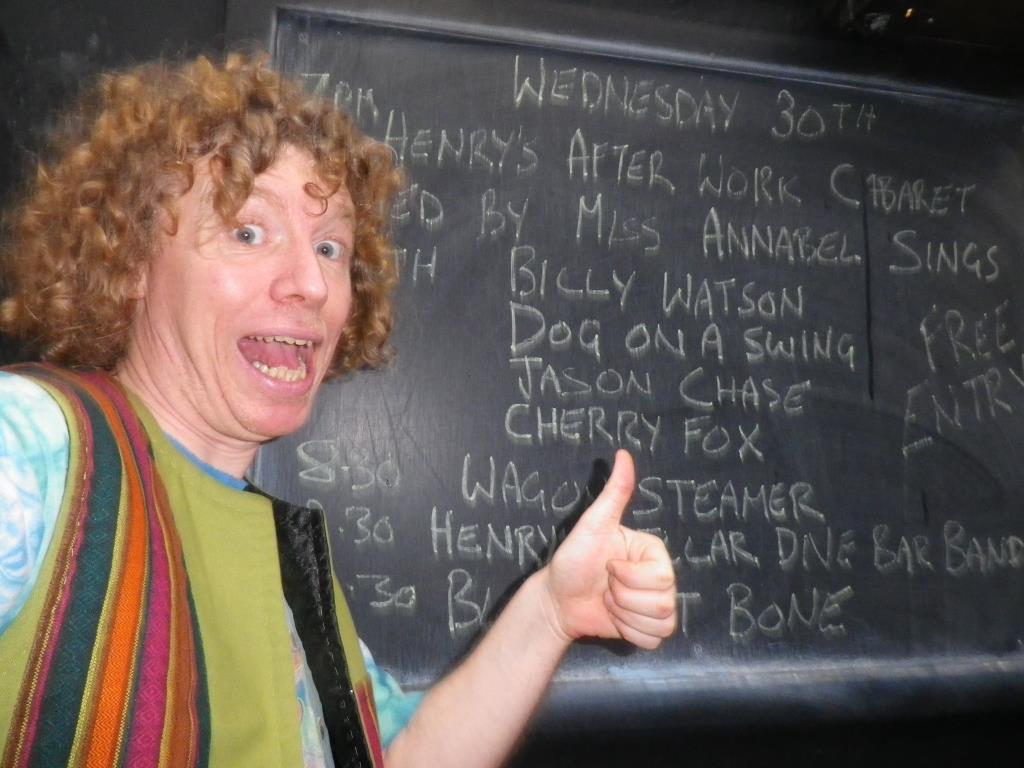 7PM WEDNESDAY 30TH
HENRY'S AFTER WORK CABARET
ED BY MISS ANNABEL SINGS
TH BILLY WATSON
DOG ON A SWING
JASON CHASE
CHERRY FOX
FREE
ENTRY
8.30 WAGON STEAMER
.30 HENRY LLAR DIVE BAR BAND
.30 BL T BONE